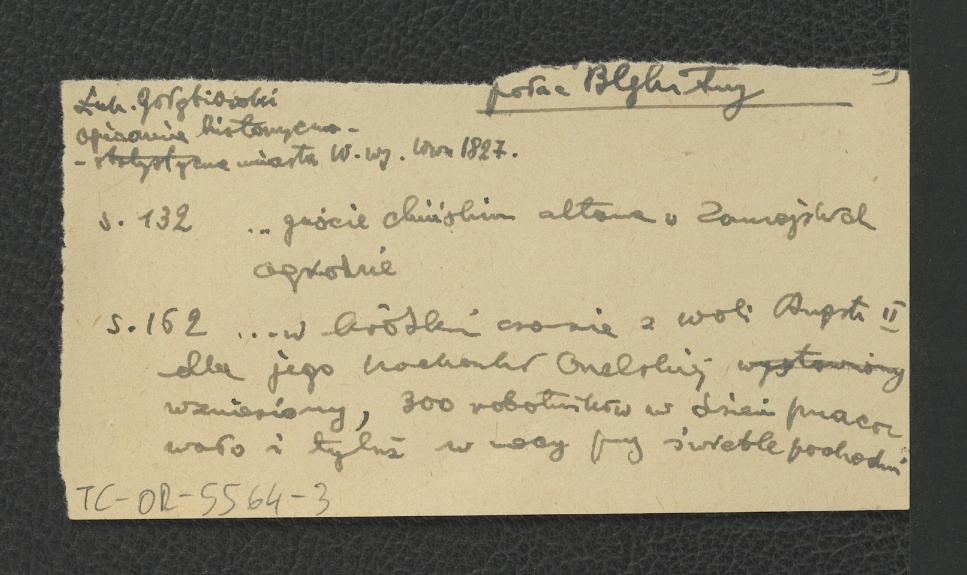 pałac Błękitny
Łuk. Gołębiowski
opisanie historyczno-
-statystyczne miasta W-wy. Wwa 1827.
s. 132 ... guście chińskim altana w Zamojskich
ogrodzie
s. 162 ...w krótkim czasie z woli Augusta II
dla jego kochanki Orzelskiej wystawiony
wzniesiony, 300 robotników w dzień praco
wało i tyluż w nocy przy świetle pochodni
TC-OR-5564-3